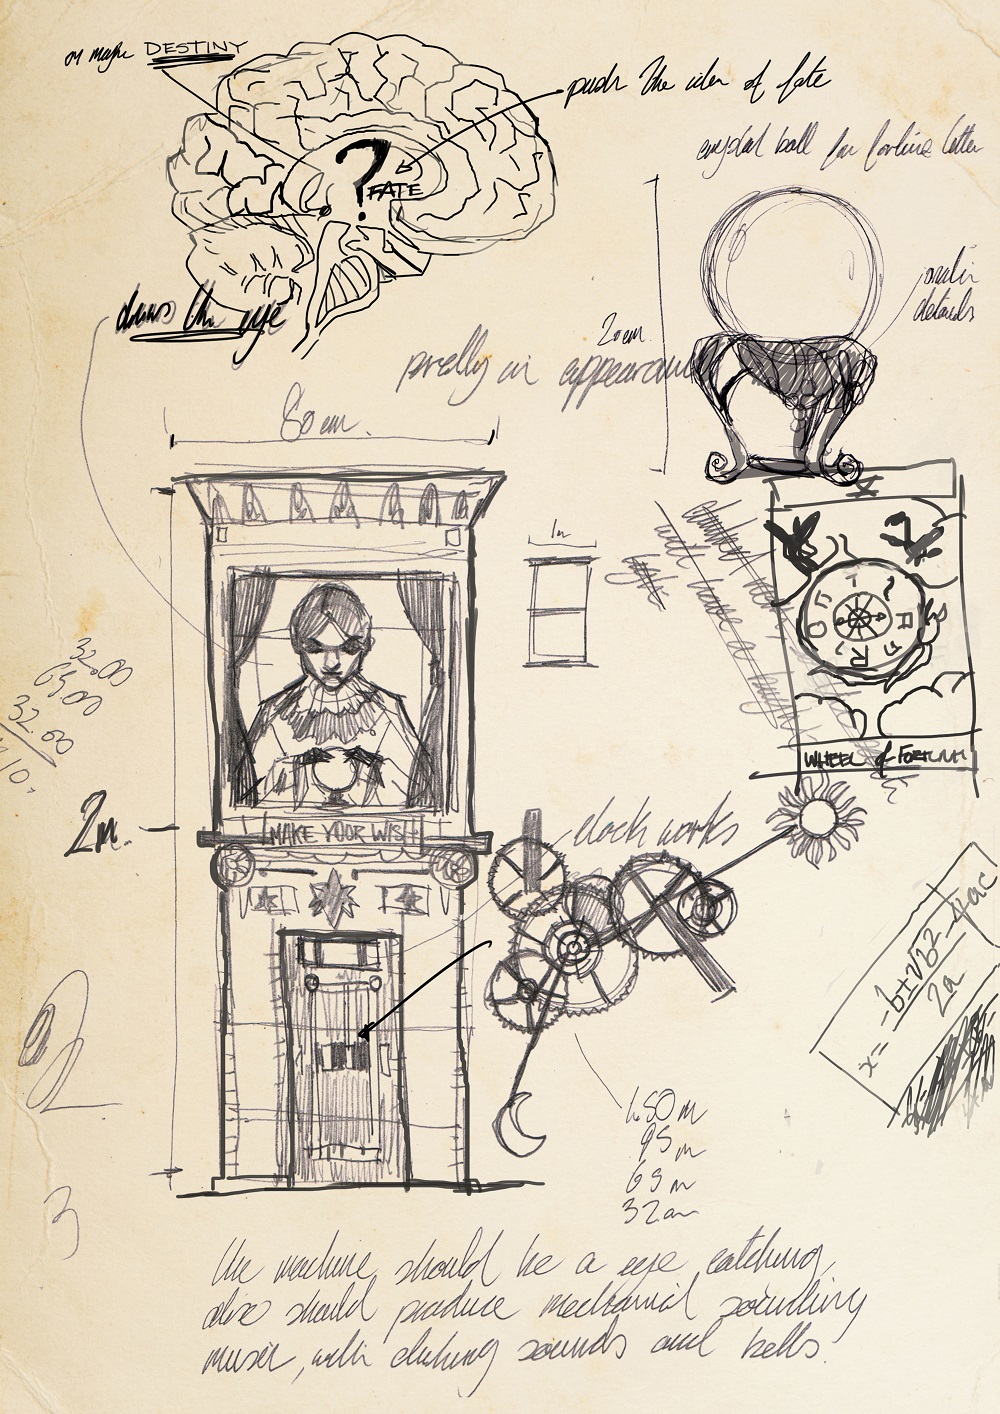 or maybe DESTINY
push the idea of fate
crystal ball for fortune teller
?
FATE
draws the eye
details
20cm
pretty in appearance
80cm.
1m
X
WHEEL of FORTUNE
32.00
65.00
32.00
10.
2m.
MAKE YOUR WISH
clock works
x = -b±√b²-4ac
2a
95m
65m
3
the machine should be a eye catching,
also should produce mechanical sounding
music, with clicking sounds and bells.